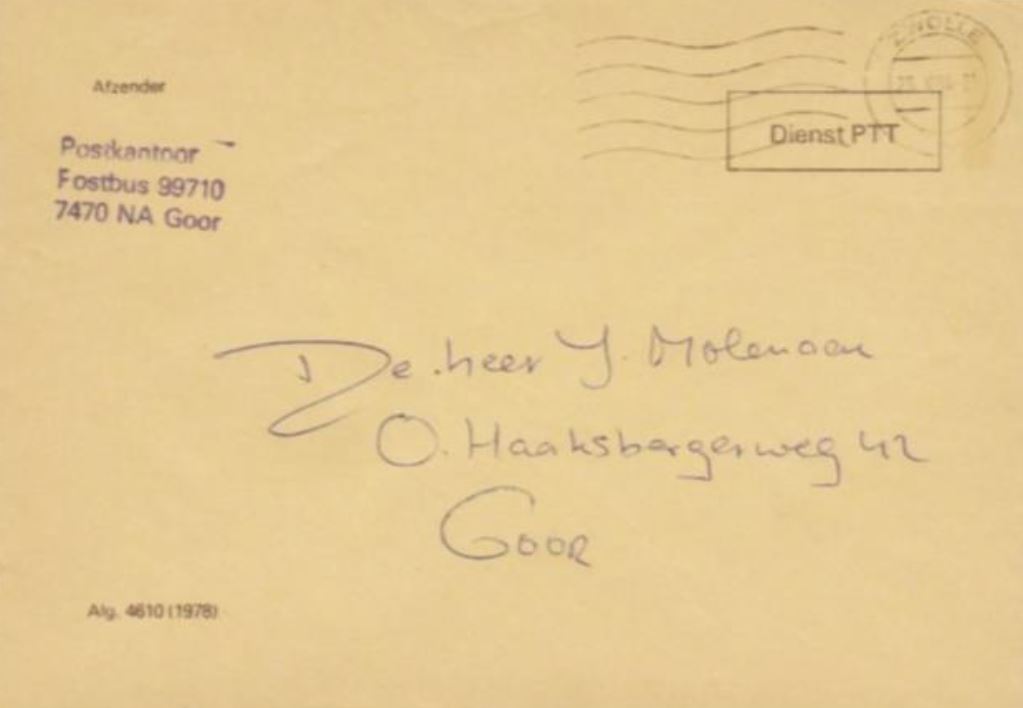 Afzender
Postkantoor
Postbus 99710
7470 NA Goor
ZWOLLE
Dienst PTT
De heer J. Molenaar
O. Haaksbergerweg 42
Goor
Alg. 4610 (1978)